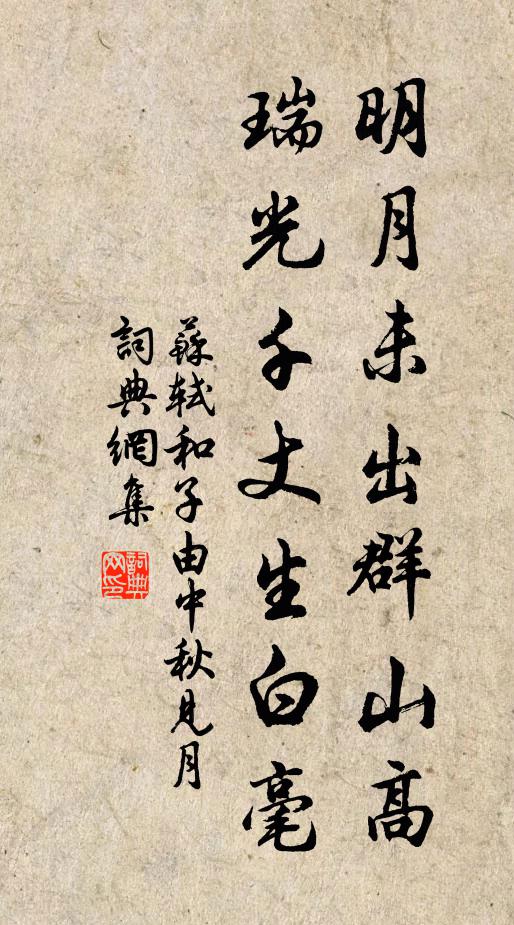 明月未出群山高
瑞光千丈生白毫
蘇軾和子由中秋見月
詞典網集
詞典網印